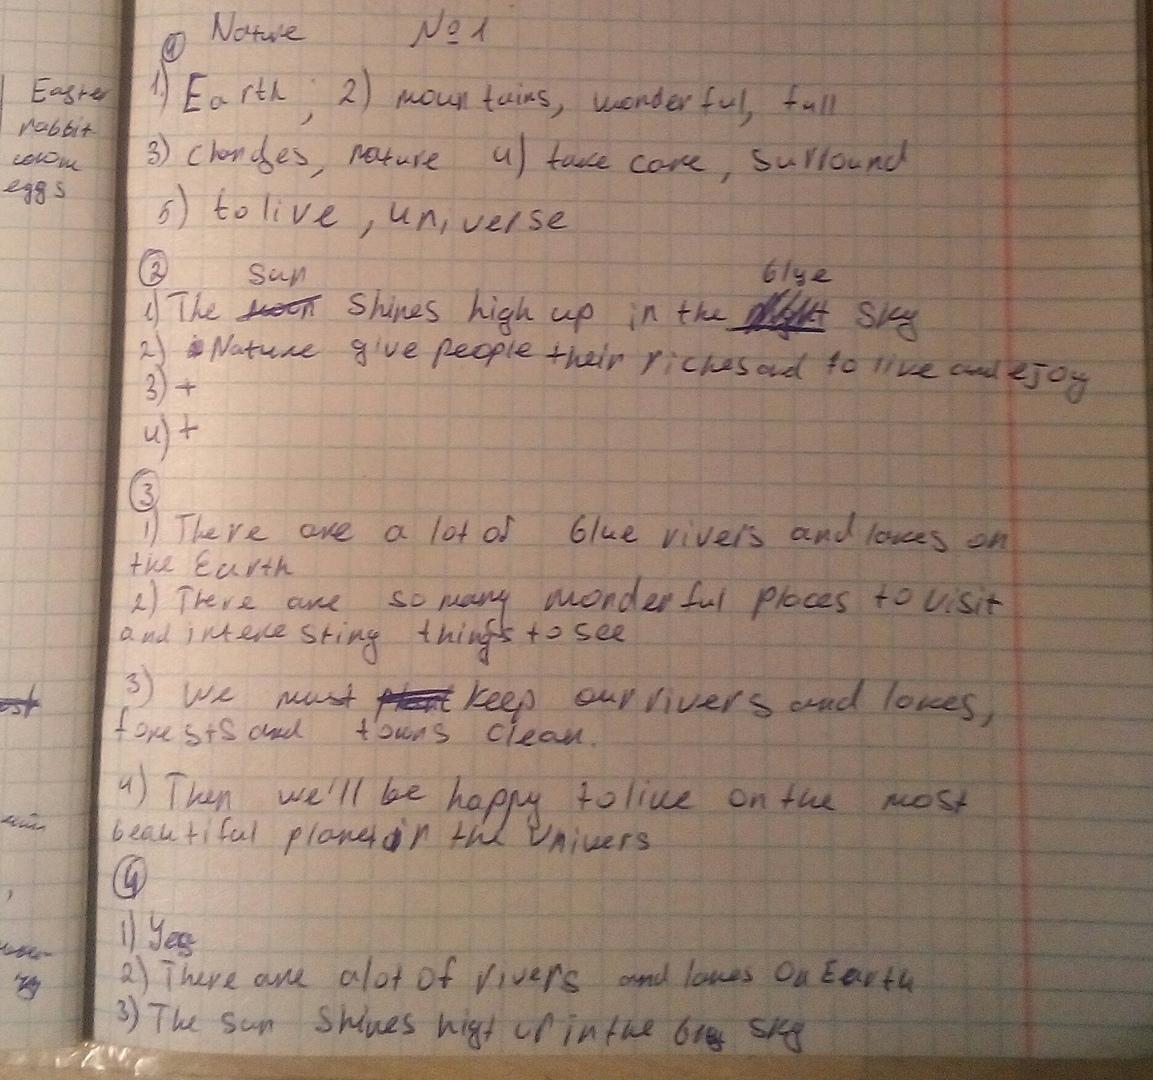 Nature №1
①
1) Earth, 2) mountains, wonderful, full
3) changes, nature 4) take care, surround
5) to live, universe
②
Sun blue
1) The moon shines high up in the night sky
2) Nature give people their riches ad to live and ejoy
3) +
4) +
③
1) There are a lot of blue rivers and lakes on
the Earth
2) There are so many wonderful places to visit
and interesting things to see
3) We must plant keep our rivers and lakes,
forests and towns clean.
4) Then we'll be happy to live on the most
beautiful planet in the Univers
④
1) Yes
2) There are a lot of rivers and lakes on Earth
3) The sun shines higt up in the sky
Easter
rabbit
eggs